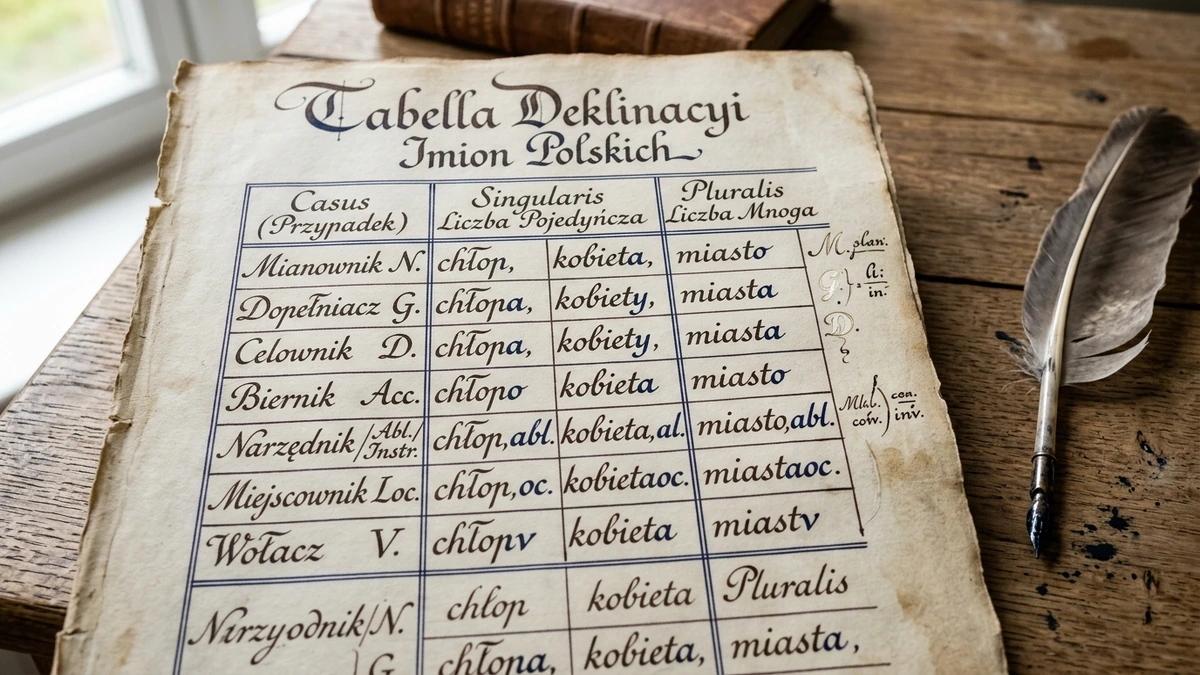 Tabella Deklinacyi
Imion Polskich
Casus
(Przypadek)
Singularis
Liczba Pojedyńcza
Pluralis
Liczba Mnoga
Mianownik N. chłop, kobieta, miasto
Dopełniacz G. chłopa, kobiety, miasta
Celownik D. chłopa, kobiety, miasta
Biernik Acc. chłopo kobieta miasto
Narzędnik/Abl./Instr. chłop,abl. kobieta,al. miasto,abl.
Miejscownik Loc. chłop,oc. kobietaoc. miastaoc.
Wołacz V. chłopv kobieta miastv
Nırzyodnik/N. chłop kobieta Pluralis
G. chłona, kobieta, miasta,
M. plan.
G.
in.
D.
inv.